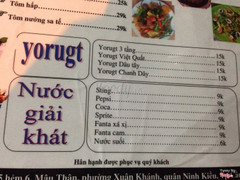 Tôm hấp 25k
Tôm nướng sa tế 29k
yorugt
Yorugt 3 tầng 15k
Yorugt Việt Quất 15k
Yorugt Dâu tây 15k
Yorugt Chanh Dây 15k
Nước giải khát
Sting
Pepsi
Coca
Sprite
Fanta xá xị
Fanta cam 9k
Nước suối 6k
Hân hạnh được phục vụ quý khách
hẻm 6, Mậu Thân, phường Xuân Khánh, quận Ninh Kiều,